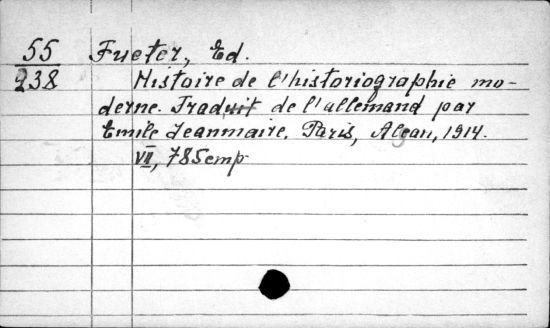 55 Fueter, Ed.
238 Histoire de l'historiographie mo-
derne. Traduit de l'allemand par
Emile Jeanmaire. Paris, Alcan, 1914.
VII, 785 стр